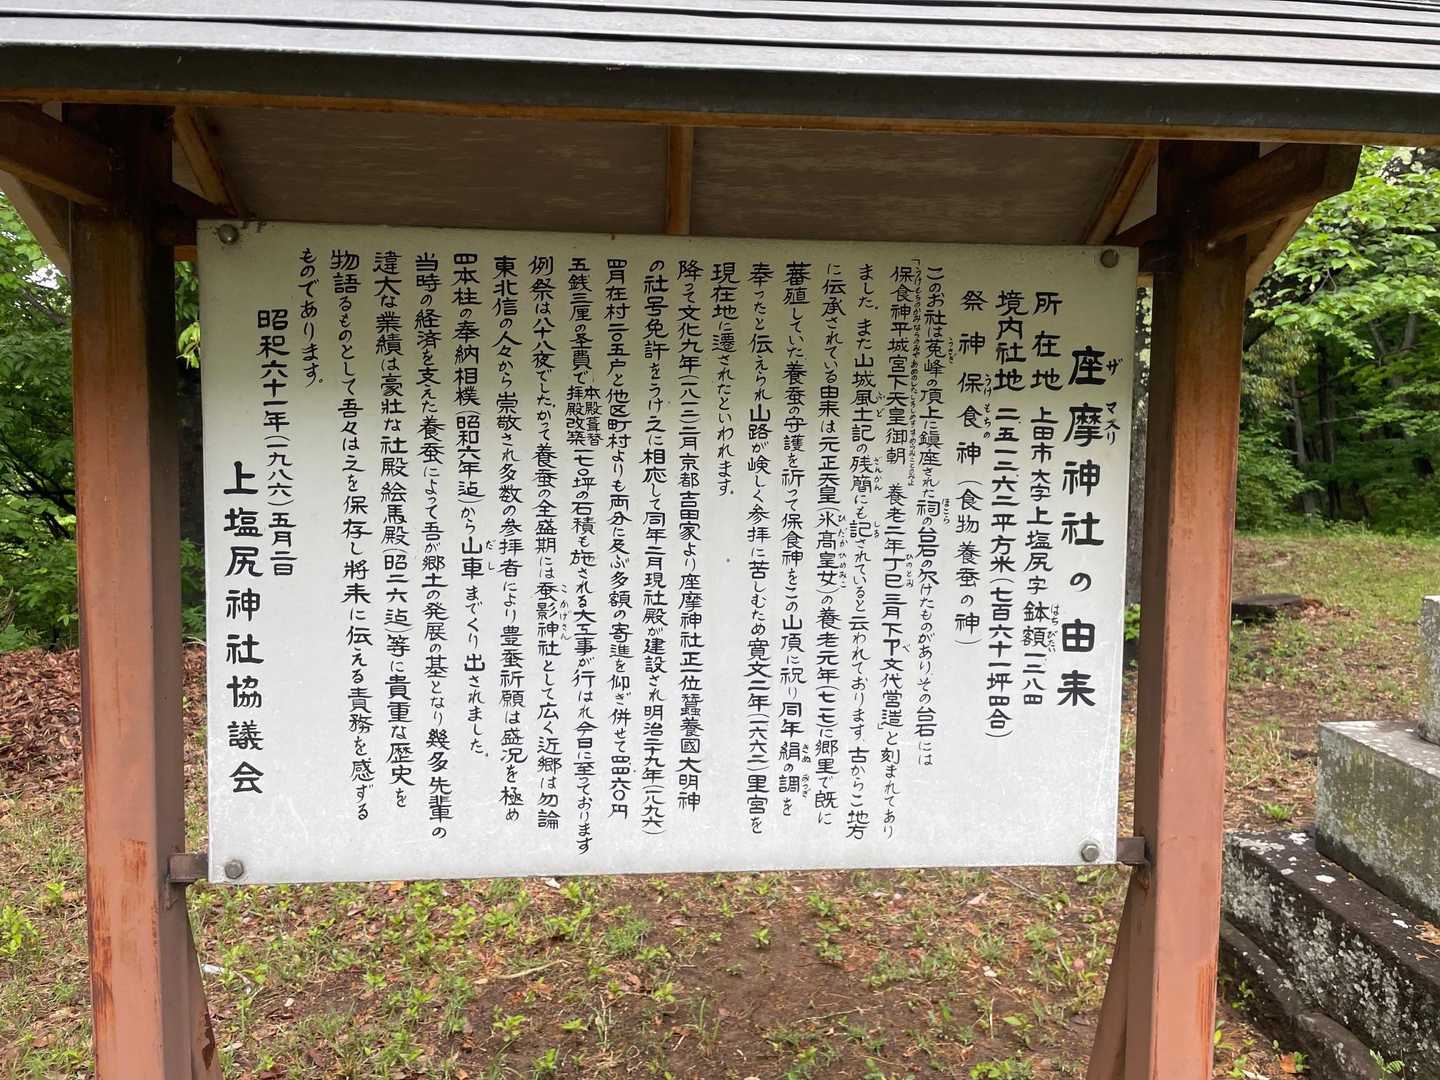 座摩神社の由来
ザマスリ
所在地 上田市大字上塩尻字鉢額一三八四
はちびたい
境内社地 二五一三六二平方米(七百六十一坪四合)
祭神 保食神(食物養蚕の神)
うけもちの
このお社は菟峰の頂上に鎮座された祠の台石の欠けたものがありその台石には
ほこら
「保食神平城宮下天皇御朝 養老二年丁巳三月下下文代営造」と刻まれてあり
ひのとみ
ました。また山城風土記の残簡にも記されていると云われております。古からこ地方
ふど ざんかん しる
に伝承されている由来は元正天皇(氷高皇女)の養老元年(七一七)に郷里で既に
ひだかひめみこ
蕃殖していた養蚕の守護を祈って保食神をこの山頂に祝り同年絹の調を
きぬ みつぎ
奉ったと伝えられ山路が峻しく参拝に苦しむため寛文二年(一六六二)里宮を
現在地に遷されたといわれます。
降って文化九年(一八一二)二月京都吉田家より座摩神社正一位蠶養國大明神
の社号免許をうけ之に相応して同年二月現社殿が建設され明治二十九年(一八九六)
四月在村二〇五戸と他区町村よりも両分に及ぶ多額の寄進を仰ぎ併せて四四六〇円
五銭三厘の冬費で本殿葺替拝殿改築一七〇坪の石積も施される大工事が行はれ今日に至っております
例祭は八十八夜でした。かって養蚕の全盛期には蚕影神社として広く近郷は勿論
こかげさん
東北信の人々から崇敬され多数の参拝者により豊蚕祈願は盛況を極め
四本柱の奉納相撲(昭和六年迠)から山車までくり出されました。
だし
当時の経済を支えた養蚕によって吾が郷土の発展の基となり幾多先輩の
違大な業績は豪壮な社殿絵馬殿(昭二六迠)等に貴重な歴史を
物語るものとして吾々は之を保存し将来に伝える責務を感ずる
ものであります。
昭和六十一年(一九八六)五月二日
上塩尻神社協議会